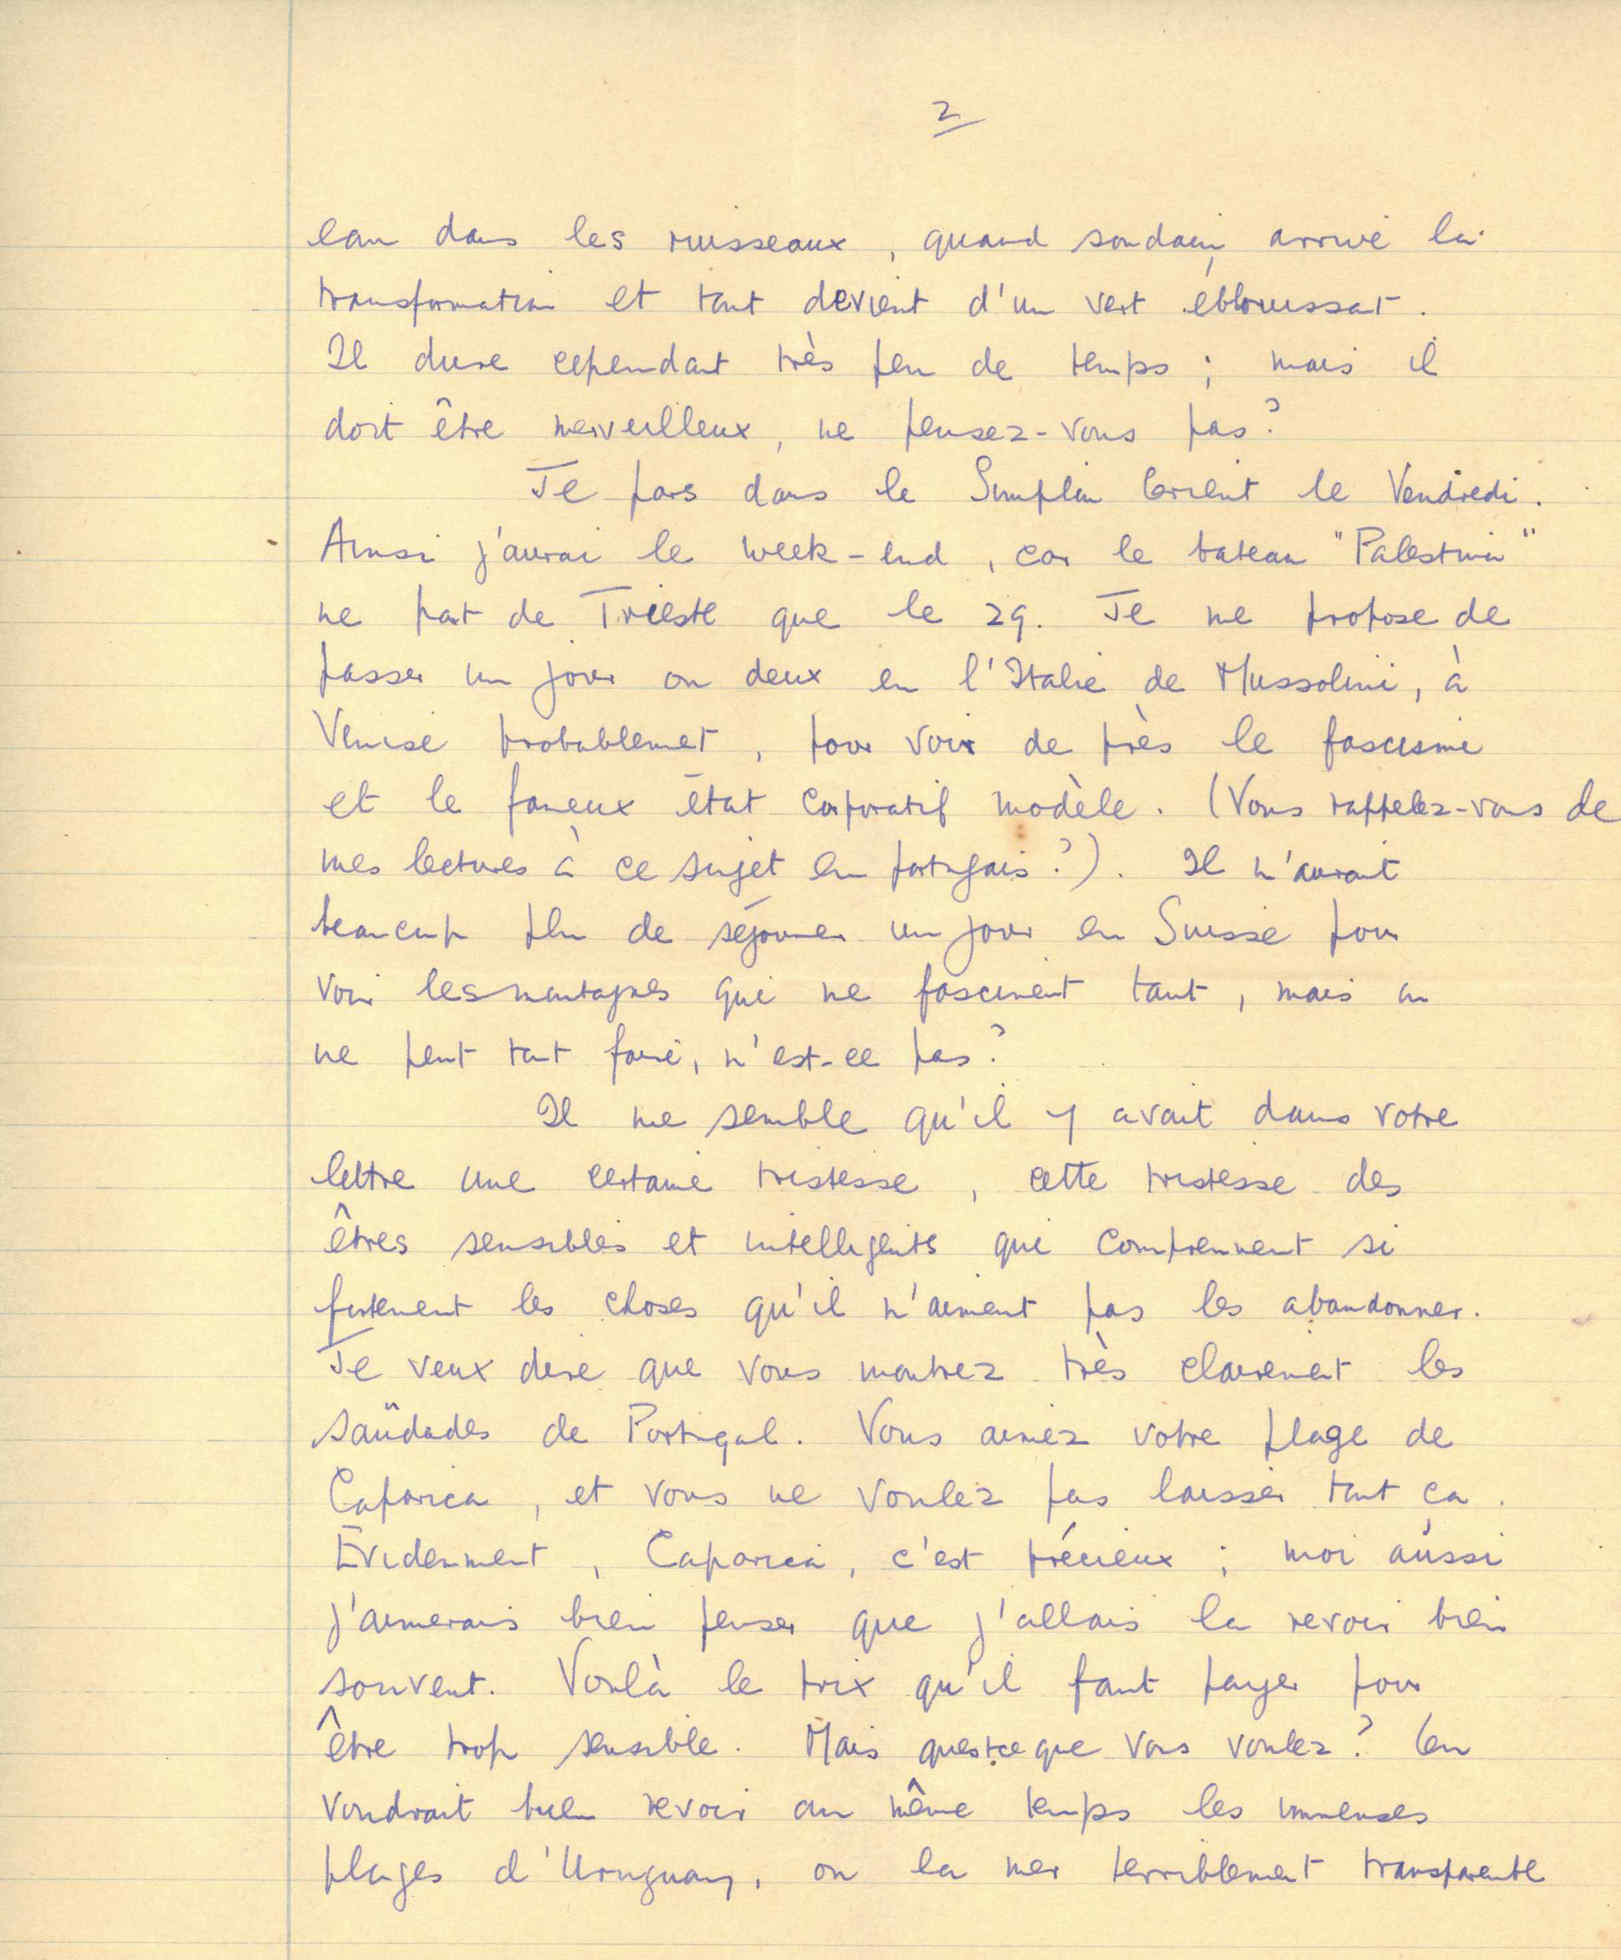 2
eau dans les ruisseaux, quand soudain arrive la
transformation et tout devient d'un vert éblouissat.
Il dure cependant très peu de temps; mais il
doit être merveilleux, ne pensez-vous pas?
Je pars dans le Simplon Orient le Vendredi.
Ainsi j'aurai le week-end, car le bateau "Palestina"
ne part de Trieste que le 29. Je me propose de
passer un jour ou deux en l'Italie de Mussolini, à
Venise probablemet, pour voir de près le fascisme
et le fameux état corporatif modèle. (Vous rappelez-vous de
mes lectures à ce sujet en portugais?). Il m'aurait
beaucoup plu de séjourner un jour en Suisse pour
voir les montagnes qui me fascinent tant, mais on
ne peut tout faire, n'est-ce pas?
Il me semble qu'il y avait dans votre
lettre une certaine tristesse, cette tristesse des
êtres sensibles et intelligents qui comprennent si
fortement les choses qu'il n'aiment pas les abandonner.
Je veux dire que vous montrez très clairement les
saüdades de Portugal. Vous aimez votre plage de
Caparica, et vous ne voulez pas laisser tout ça.
Evidenment, Caparica, c'est précieux; moi aussi
j'aimerais bien penser que j'allais la revoir bien
souvent. Voilà le prix qu'il faut payer pour
être trop sensible. Mais questce que vous voulez? On
voudrait bien revoir au même temps les immenses
plages d'Uruguay, ou la mer terriblement transparente